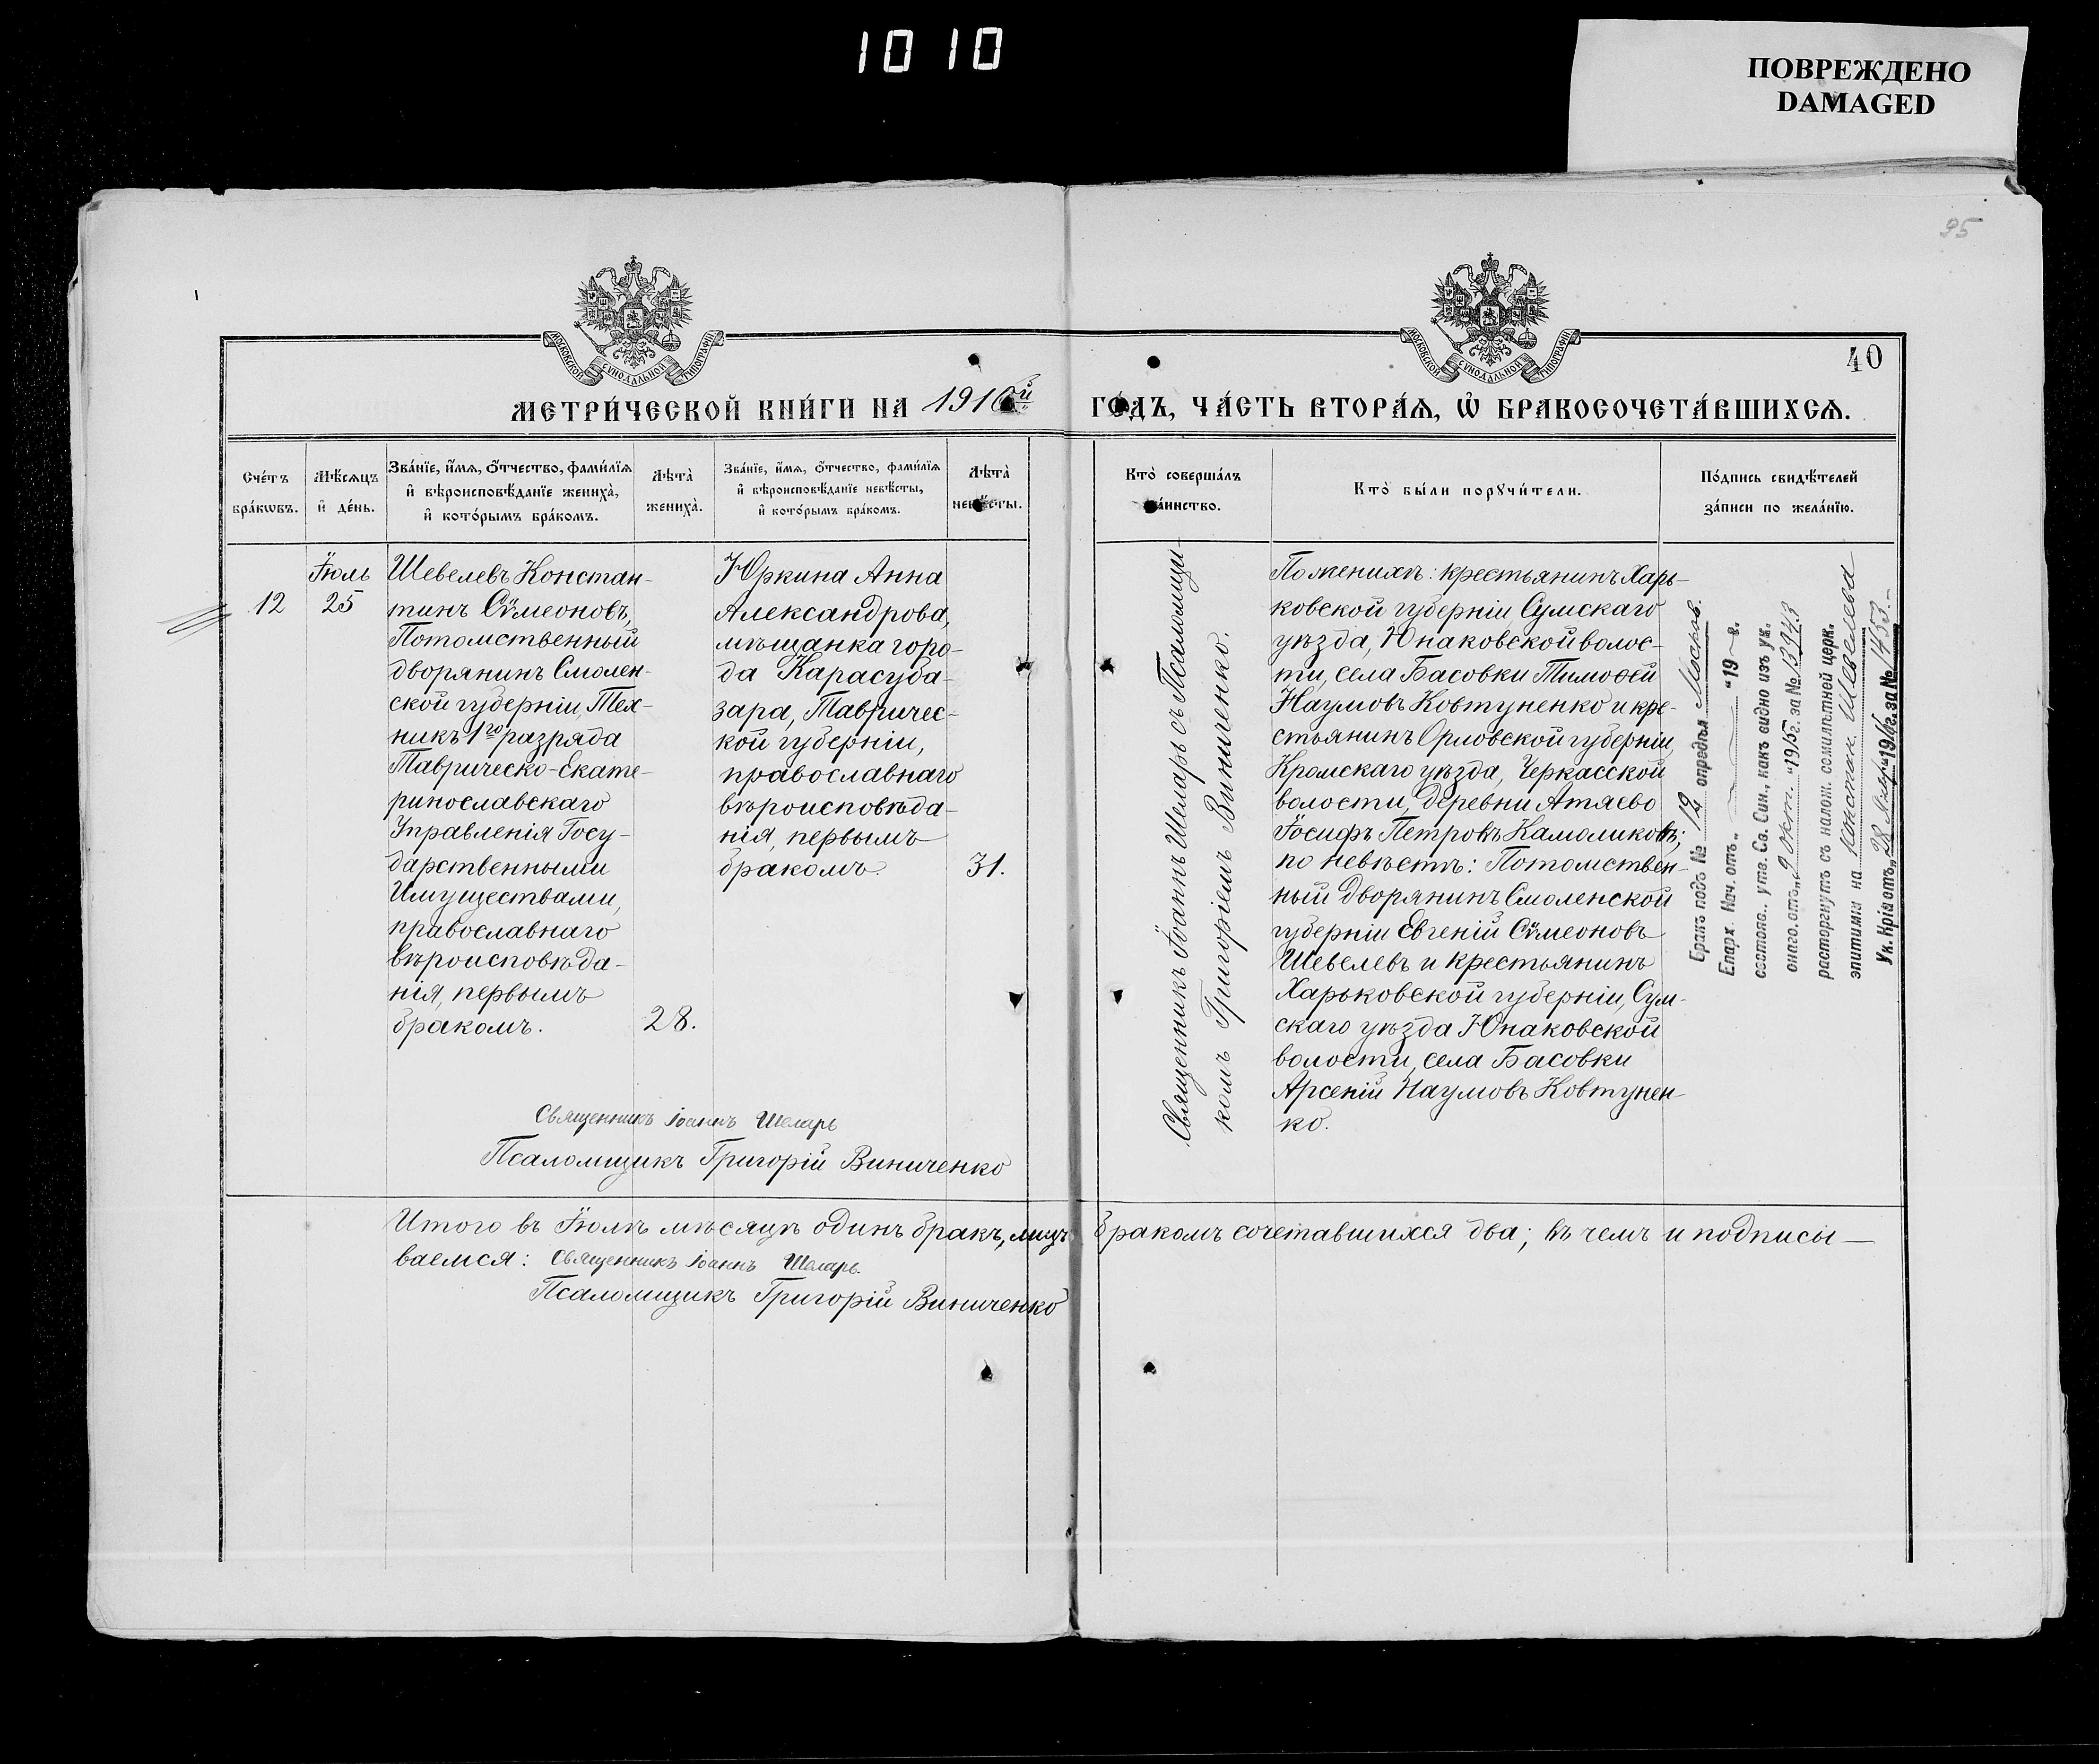 1010
ПОВРЕЖДЕНО
DAMAGED
95
МОСКОВСКОЙ СѴНОДАЛЬНОЙ ТИПОГРАФІИ
МОСКОВСКОЙ СѴНОДАЛЬНОЙ ТИПОГРАФІИ
40
МЕТРИ́ЧЕСКОЙ КНИ́ГИ НА 1910й ГО́ДЪ, ЧА́СТЬ ВТОРА́Ѧ, Ѽ БРАКОСОЧЕТА́ВШИХСѦ.
Сче́тъ бра́кѡвъ.
Мѣ́сѧцъ и҆ де́нь.
Зва́нїе, и҆́мѧ, ѻ҆́тчество, фами́лїѧ
и҆ вѣроисповѣ́данїе жениха̀,
и҆ кото́рымъ бра́комъ.
Лѣта̀ жениха̀.
Зва́нїе, и҆́мѧ, ѻ҆́тчество, фами́лїѧ
и҆ вѣроисповѣ́данїе невѣ́сты,
и҆ кото́рымъ бра́комъ.
Лѣта̀ невѣ́сты.
Кто̀ соверша́лъ
та́инство.
Кто̀ бы́ли порꙋчи́тели.
По́дпись свидѣ́телей
за́писи по жела́нїю.
12
Іюль
25
Шевелевъ Констан-
тинъ Сѵмеоновъ,
Потомственный
дворянинъ Смолен-
ской губерніи, Тех-
никъ 1го разряда
Таврическо-Екате-
ринославскаго
Управленія Госу-
дарственными
Имуществами,
православнаго
вѣроисповѣда-
нія, первымъ
бракомъ.
28.
Юркина Анна
Александрова,
мѣщанка горо-
да Карасуба-
зара, Тавричес-
кой губерніи,
православнаго
вѣроисповѣда-
нія, первымъ
бракомъ.
31.
Священникъ Іоаннъ Шеларь съ Псаломщи-
комъ Григоріемъ Виниченко.
По женихѣ: крестьянинъ Харь-
ковской губерніи Сумскаго
уѣзда, Юнаковской волос-
ти, села Басовки Тимоѳей
Наумовъ Ковтуненко и кре-
стьянинъ Орловской губерніи,
Кромскаго уѣзда, Черкасской
волости, деревни Атяево
Іосифъ Петровъ Камоликовъ;
по невѣстѣ: Потомствен-
ный дворянинъ Смоленской
губерніи Евгеній Сѵмеоновъ
Шевелевъ и крестьянинъ
Харьковской губерніи, Сум-
скаго уѣзда Юнаковской
волости, села Басовки
Арсеній Наумовъ Ковтунен-
ко.
Бракъ подъ № 12 опредѣл. Москов.
Епарх. Нач. отъ „ “ 19 г.
состояв. утв. Св. Син., какъ видно изъ ук.
онаго, отъ „9 Окт.“ 1915 г. за № 13943
расторгнутъ съ налож. семилѣтней церк.
эпитиміи на Констан. Шевелева
Ук. Кр҃ія отъ „28 “ 1916 г. за № 1453.
Священникъ Іоаннъ Шеларь
Псаломщикъ Григорій Виниченко
Итого въ Іюлѣ мѣсяцѣ одинъ бракъ, лицъ бракомъ сочетавшихся два; въ чемъ и подписы-
ваемся: Священникъ Іоаннъ Шеларь.
Псаломщикъ Григорій Виниченко